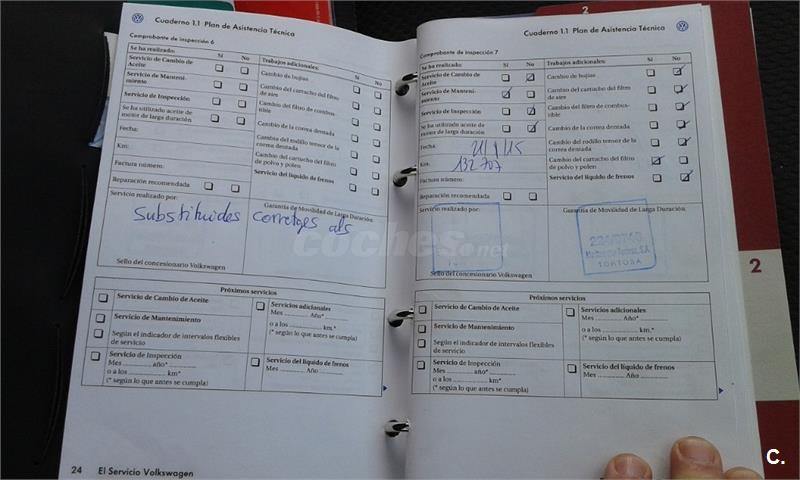 Cuaderno 1.1 Plan de Asistencia Técnica
Comprobante de inspección 6
Se ha realizado: Sí No
Servicio de Cambio de
Aceite
Servicio de Manteni-
miento
Servicio de Inspección
Se ha utilizado aceite de
motor de larga duración
Fecha:
Km:
Factura número:
Reparación recomendada
Trabajos adicionales: Sí No
Cambio de bujías
Cambio del cartucho del filtro
de aire
Cambio del filtro de combus-
tible
Cambio de la correa dentada
Cambio del rodillo tensor de la
correa dentada
Cambio del cartucho del filtro
de polvo y polen
Servicio del líquido de frenos
Servicio realizado por:
Garantía de Movilidad de Larga Duración
Substituides corretges als
Sello del concesionario Volkswagen
Próximos servicios
Servicio de Cambio de Aceite
Servicio de Mantenimiento
Según el indicador de intervalos flexibles
de servicio
Servicio de Inspección
Mes ........... año* ...........
o a los ........... km*
(* según lo que antes se cumpla)
Servicios adicionales
Mes ........... Año* ...........
o a los ........... km*
(* según lo que antes se cumpla)
Servicio del líquido de frenos
Mes ........... Año ...........
24 El Servicio Volkswagen
2
Cuaderno 1.1 Plan de Asistencia Técnica
Comprobante de inspección 7
Se ha realizado: Sí No
Servicio de Cambio de
Aceite
Servicio de Manteni-
miento
Servicio de Inspección
Se ha utilizado aceite de
motor de larga duración
Fecha:
Km: 132707
Factura número:
Reparación recomendada
Trabajos adicionales: Sí No
Cambio de bujías
Cambio del cartucho del filtro
de aire
Cambio del filtro de combus-
tible
Cambio de la correa dentada
Cambio del rodillo tensor de la
correa dentada
Cambio del cartucho del filtro
de polvo y polen
Servicio del líquido de frenos
Servicio realizado por:
Garantía de Movilidad de Larga Duración
TORTOSA
Sello del concesionario Volkswagen
Próximos servicios
Servicio de Cambio de Aceite
Servicio de Mantenimiento
Según el indicador de intervalos flexibles
de servicio
Servicio de Inspección
Mes ........... año* ...........
o a los ........... km*
(* según lo que antes se cumpla)
Servicios adicionales
Mes ........... Año* ...........
o a los ........... km*
(* según lo que antes se cumpla)
Servicio del líquido de frenos
Mes ........... Año ...........
2
coches.net
C.